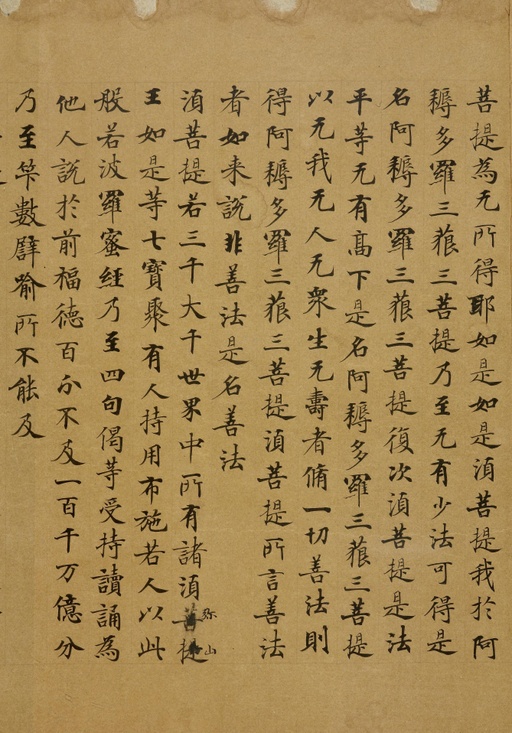 菩提為无所得耶如是如是湏菩提我於阿
耨多羅三藐三菩提乃至无有少法可得是
名阿耨多羅三藐三菩提復次湏菩提是法
平等无有高下是名阿耨多羅三藐三菩提
以无我无人无衆生无壽者脩一切善法則
得阿耨多羅三藐三菩提湏菩提所言善法
者如来說非善法是名善法
湏菩提若三千大千世界中所有諸湏菩提
弥山
王如是等七寶聚有人持用布施若人以此
般若波羅蜜經乃至四句偈等受持讀誦為
他人說於前福德百分不及一百千万億分
乃至筭數譬喻所不能及